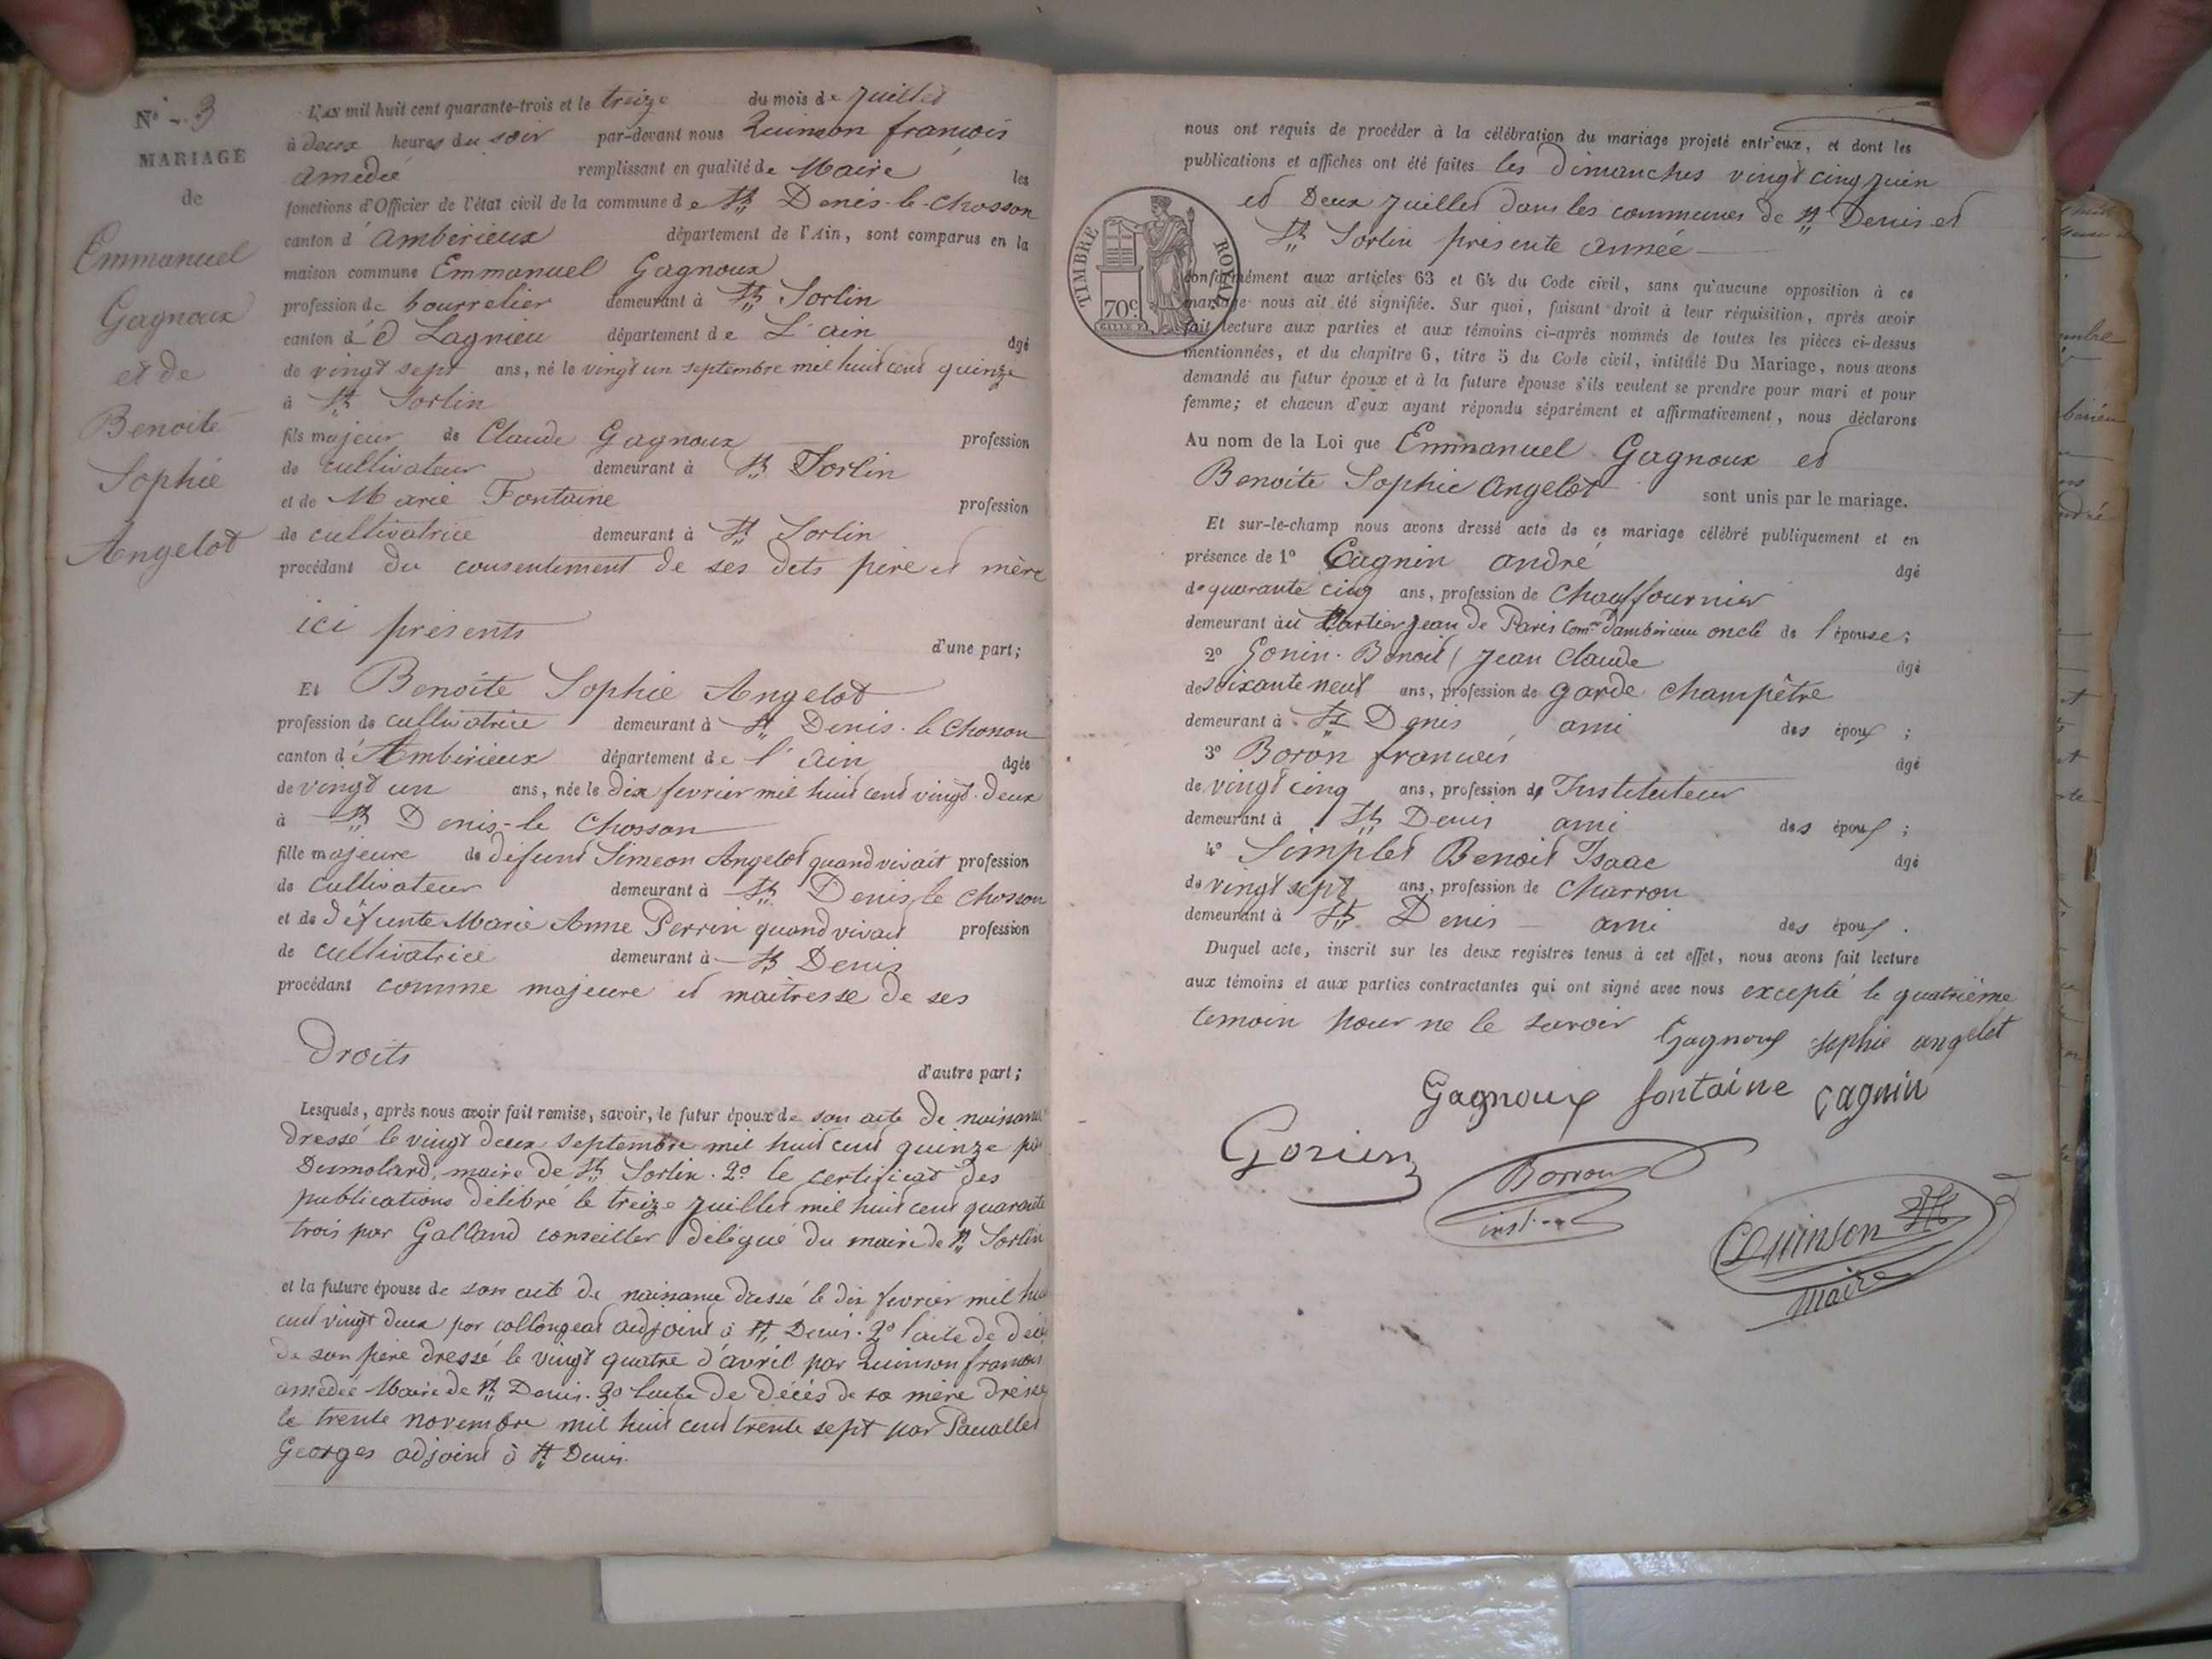 N° 3
MARIAGE
de
Emmanuel
Gagnoux
et de
Benoite
Sophie
Angelot
L'an mil huit cent quarante-trois et le treize du mois de juillet
à deux heures du soir par-devant nous Quinson françois
amédée remplissant en qualité de Maire les
fonctions d'Officier de l'état civil de la commune de St Denis-le-Chosson
canton d'ambérieux département de l'Ain, sont comparus en la
maison commune Emmanuel Gagnoux
profession de bourrelier demeurant à St Sorlin
canton de Lagnieu département de L'ain âgé
de vingt sept ans, né le vingt un septembre mil huit cent quinze
à St Sorlin
fils majeur de Claude Gagnoux profession
de cultivateur demeurant à St Sorlin
et de Marie Fontaine profession
de cultivatrice demeurant à St Sorlin
procédant du consentement de ses dits père et mère
ici présents
d'une part;
Et Benoite Sophie Angelot
profession de cultivatrice demeurant à St Denis-le Chosson
canton d'Ambérieux département de l'ain âgée
de vingt un ans, née le dix fevrier mil huit cent vingt-deux
à St Denis-le Chosson
fille majeure de défunt Simeon Angelot quand vivait profession
de cultivateur demeurant à St Denis le Chosson
et de défunte Marie Anne Perrin quand vivait profession
de cultivatrice demeurant à St Denis
procédant comme majeure et maitresse de ses
droits
d'autre part;
Lesquels, après nous avoir fait remise, savoir, le futur époux de son acte de naissance
dressé le vingt deux septembre mil huit cent quinze par
Dumolard, maire de St Sorlin. 2° le certificat des
publications délibré le treize juillet mil huit cent quarante
trois par Galland conseiller délégué du maire de St Sorlin
et la future épouse de son acte de naissance dressé le dix fevrier mil huit
cent vingt deux par collongeat adjoint à St Denis. 2° l'acte de décès
de son père dressé le vingt quatre d'avril par Quinson françois
amédée Maire de St Denis. 3° l'acte de décès de sa mère dressé
le trente novembre mil huit cent trente sept par
Georges adjoint à St Denis.
nous ont requis de procéder à la célébration du mariage projeté entr'eux, et dont les
publications et affiches ont été faites les Dimanches vingt cinq juin
et Deux juillet dans les communes de St Denis et
St Sorlin présente année
TIMBRE ROYAL
70c
conformément aux articles 63 et 64 du Code civil, sans qu'aucune opposition à ce
mariage nous ait été signifiée. Sur quoi, faisant droit à leur réquisition, après avoir
fait lecture aux parties et aux témoins ci-après nommés de toutes les pièces ci-dessus
mentionnées, et du chapitre 6, titre 5 du Code civil, intitulé Du Mariage, nous avons
demandé au futur époux et à la future épouse s'ils veulent se prendre pour mari et pour
femme; et chacun d'eux ayant répondu séparément et affirmativement, nous déclarons
Au nom de la Loi que Emmanuel Gagnoux et
Benoite Sophie Angelot sont unis par le mariage.
Et sur-le-champ nous avons dressé acte de ce mariage célébré publiquement et en
présence de 1° Cagnin andré âgé
de quarante cinq ans, profession de Chauffournier
demeurant au jean de Paris Comne d'ambérieu oncle de l'épouse;
2° Gonin Benoit jean Claude âgé
de soixante neuf ans, profession de garde champêtre
demeurant à St Denis ami des époux;
3° Boron françois âgé
de vingt cinq ans, profession d'Instituteur
demeurant à St Denis ami des époux;
4° Simplet Benoit Isaac âgé
de vingt sept ans, profession de Charron
demeurant à St Denis ami des époux.
Duquel acte, inscrit sur les deux registres tenus à cet effet, nous avons fait lecture
aux témoins et aux parties contractantes qui ont signé avec nous excepté le quatrième
temoin pour ne le savoir Gagnoux sophie angelot
Gagnoux fontaine Cagnin
Gonin
Borron
inst
Quinson
Maire